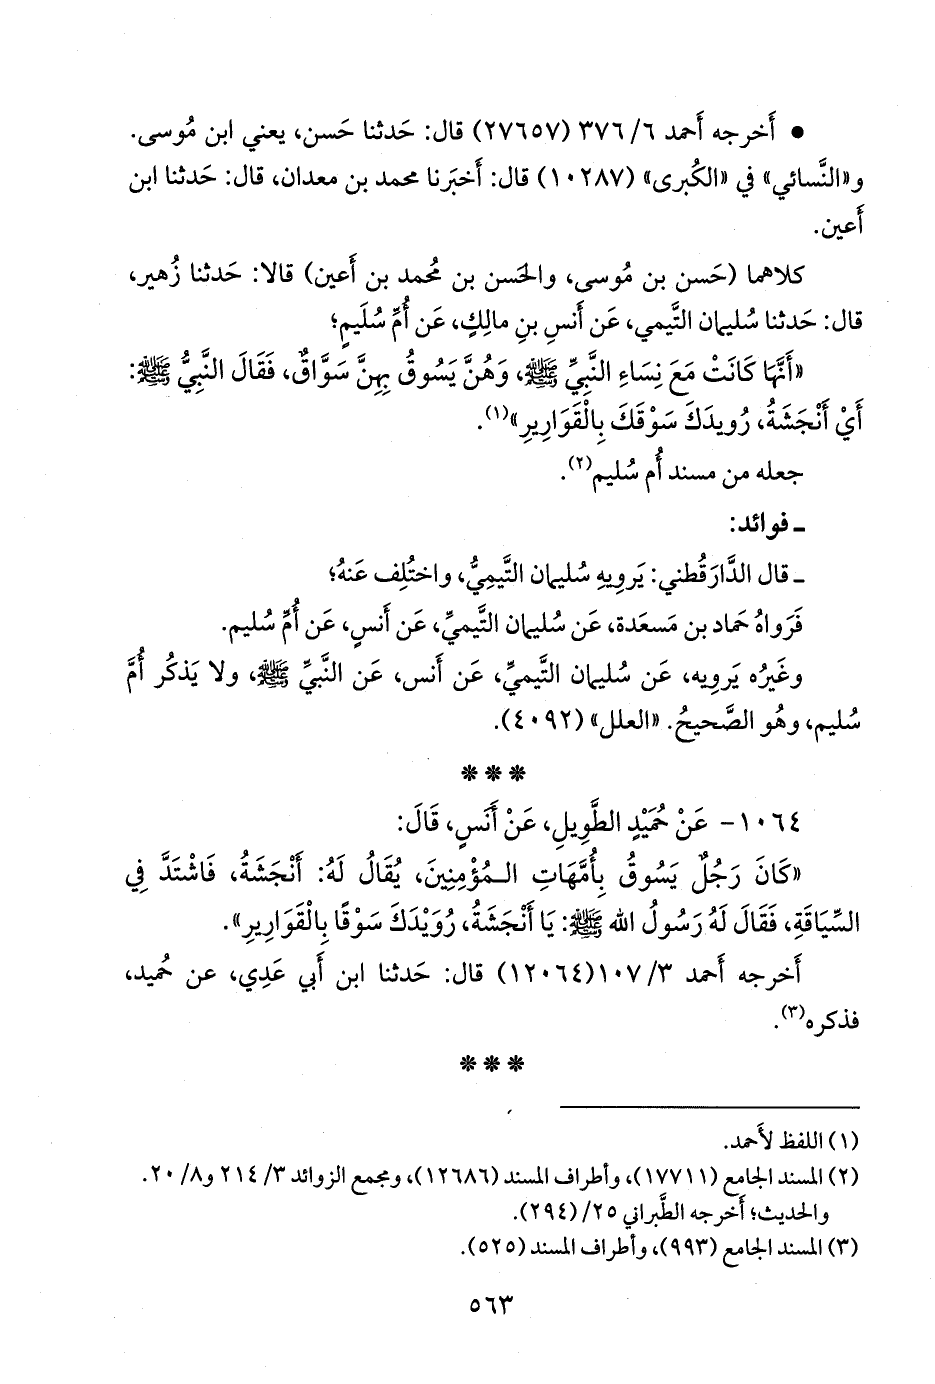 • أَخرجه أَحمد ٦/ ٣٧٦ (٢٧٦٥٧) قال: حَدثنا حَسن، يعني ابن مُوسى.
و«النَّسائي» في «الكُبرى» (١٠٢٨٧) قال: أَخبَرنا محمد بن معدان، قال: حَدثنا ابن
أَعين.
كلاهما (حَسن بن مُوسى، والحَسن بن مُحمد بن أَعين) قالا: حَدثنا زُهير،
قال: حَدثنا سُليمان التَّيمي، عَن أَنسِ بنِ مالِكٍ، عَن أُمِّ سُلَيمٍ؛
«أَنَّهَا كَانَتْ مَعَ نِسَاءِ النَّبِيِّ ﷺ، وَهُنَّ يَسُوقُ بِهِنَّ سَوَّاقٌ، فَقَالَ النَّبِيُّ ﷺ:
أَيْ أَنْجَشَةُ، رُويدَكَ سَوْقَكَ بِالْقَوَارِيرِ»(١).
جعله من مسند أُم سُليم(٢).
ـ فوائد:
ـ قال الدَّارَقُطني: يَرويهِ سُليمان التَّيميُّ، واختُلِف عَنهُ؛
فَرَواهُ حَماد بن مَسعَدة، عَن سُليمان التَّيميِّ، عَن أَنسٍ، عَن أُمِّ سُليم.
وغَيرُه يَرويه، عَن سُليمان التَّيميِّ، عَن أَنس، عَن النَّبيِّ ﷺ، ولا يَذكُر أُمَّ
سُليم، وهُو الصَّحيحُ. «العلل» (٤٠٩٢).
* * *
١٠٦٤- عَنْ حُمَيْدٍ الطَّوِيلِ، عَنْ أَنَسٍ، قَالَ:
«كَانَ رَجُلٌ يَسُوقُ بِأُمَّهَاتِ الـمُؤْمِنِينَ، يُقَالُ لَهُ: أَنْجَشَةُ، فَاشْتَدَّ فِي
السِّيَاقَةِ، فَقَالَ لَهُ رَسُولُ الله ﷺ: يَا أَنْجَشَةُ، رُوَيْدَكَ سَوْقًا بِالْقَوَارِيرِ».
أَخرجه أَحمد ٣/ ١٠٧(١٢٠٦٤) قال: حَدثنا ابن أَبي عَدِي، عن حُميد،
فذكره(٣).
* * *
(١) اللفظ لأَحمد.
(٢) المسند الجامع (١٧٧١١)، وأطراف المسند (١٢٦٨٦)، ومجمع الزوائد ٣/ ٢١٤ و٨/ ٢٠.
والحديث؛ أَخرجه الطَّبراني ٢٥/ (٢٩٤).
(٣) المسند الجامع (٩٩٣)، وأطراف المسند (٥٢٥).
٥٦٣